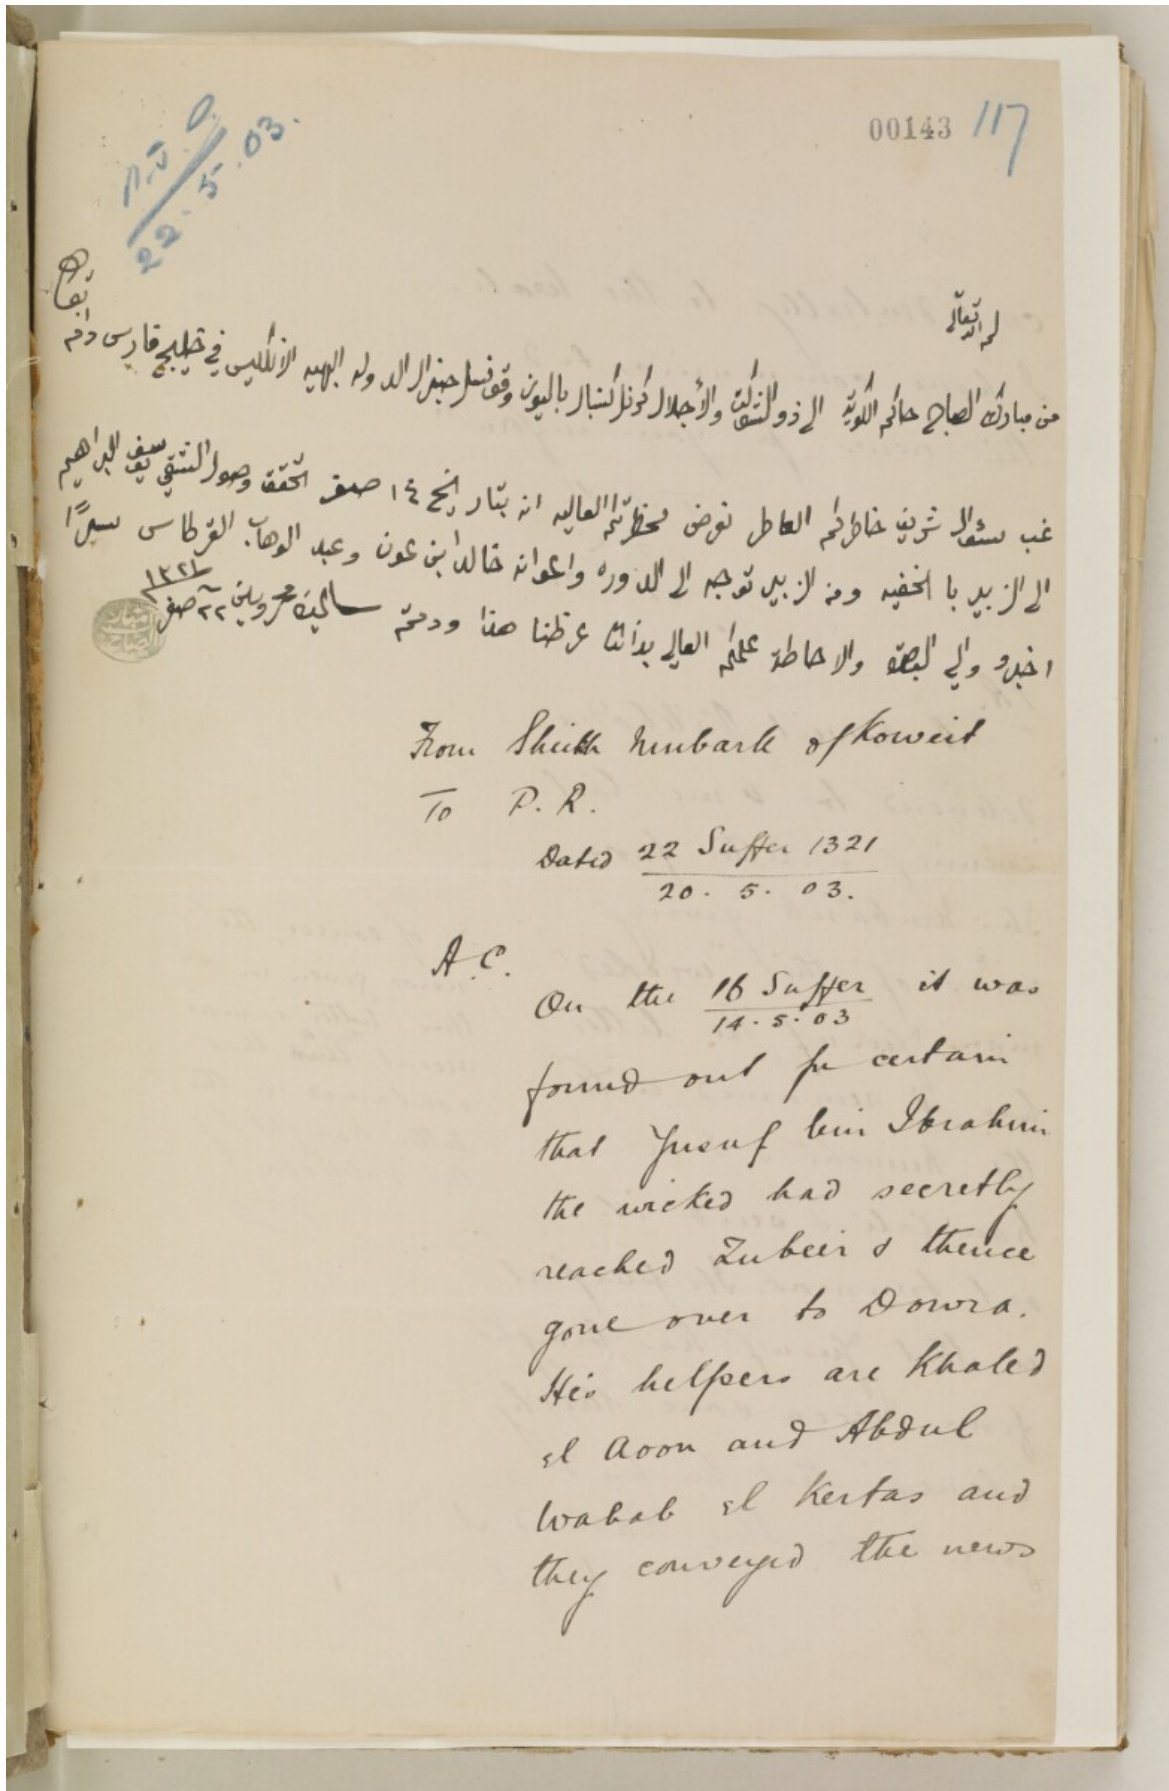 00143 117
22.5.03.
لله تعالى
من مبارك الصباح حاكم الكويت الى ذو الشوكت والأجلال كرنل كنبال باليوز وقونسل جنرال الدوله البهيه الانگليس في خليج فارس دام
بقاه
غب سئوال شريف خاطركم العاطر نعرض لحظرتكم العاليه انه بتاريخ ١٤ صفر تحقق وصول الشقي يوسف البراهيم
الى الزبير با الخفيه ومنه الزبير توجه الى الدوره واعوانه خالد ابن عون وعبد الوهاب القرطاس سرًا
اخبرو والي البصره والاحاطة علمكم العالي بذالك عرظنا هذا ودمتم سالمين محروسين ٢٢ صفر
١٣٢١
From Sheikh Mubarak of Koweit
To P. R.
Dated 22 Suffer 1321
20. 5. 03.
A. C.
On the 16 Suffer it was
14. 5. 03
found out for certain
that Yusuf bin Ibrahim
the wicked had secretly
reached Zubeir & thence
gone over to Dowra.
His helpers are Khaled
el Aoon and Abdul
Wahab el Kertas and
they conveyed the news